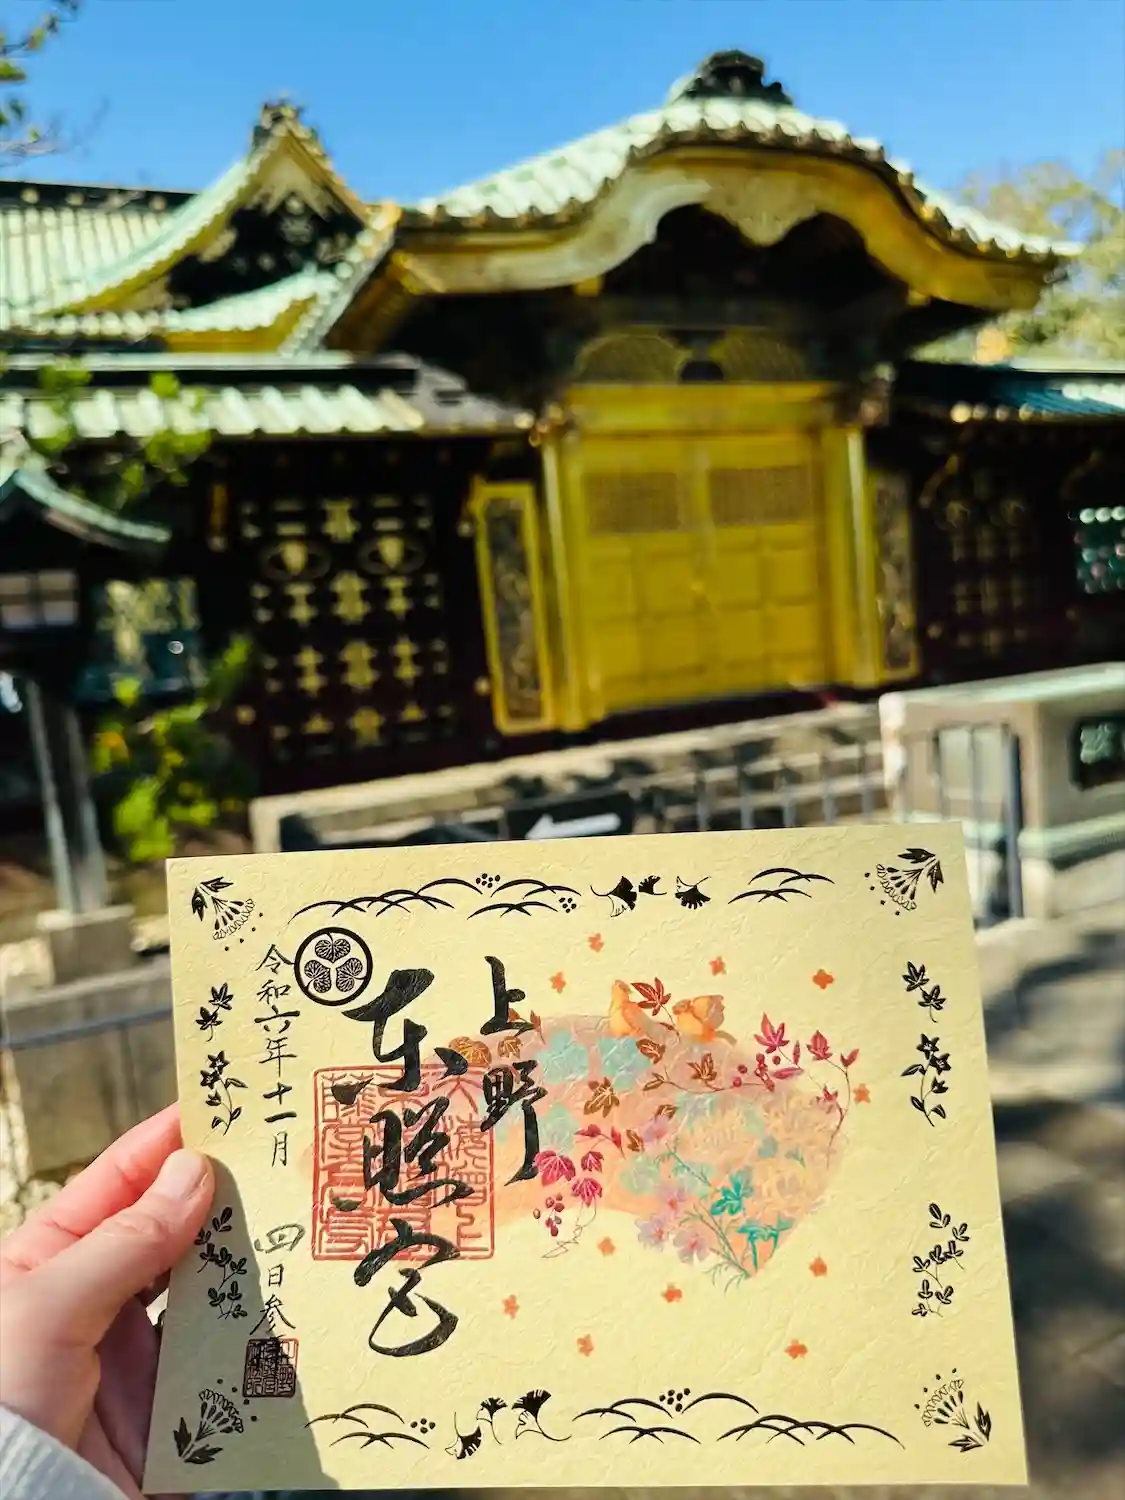 上野
東照宮
令和六年十一月 四日参